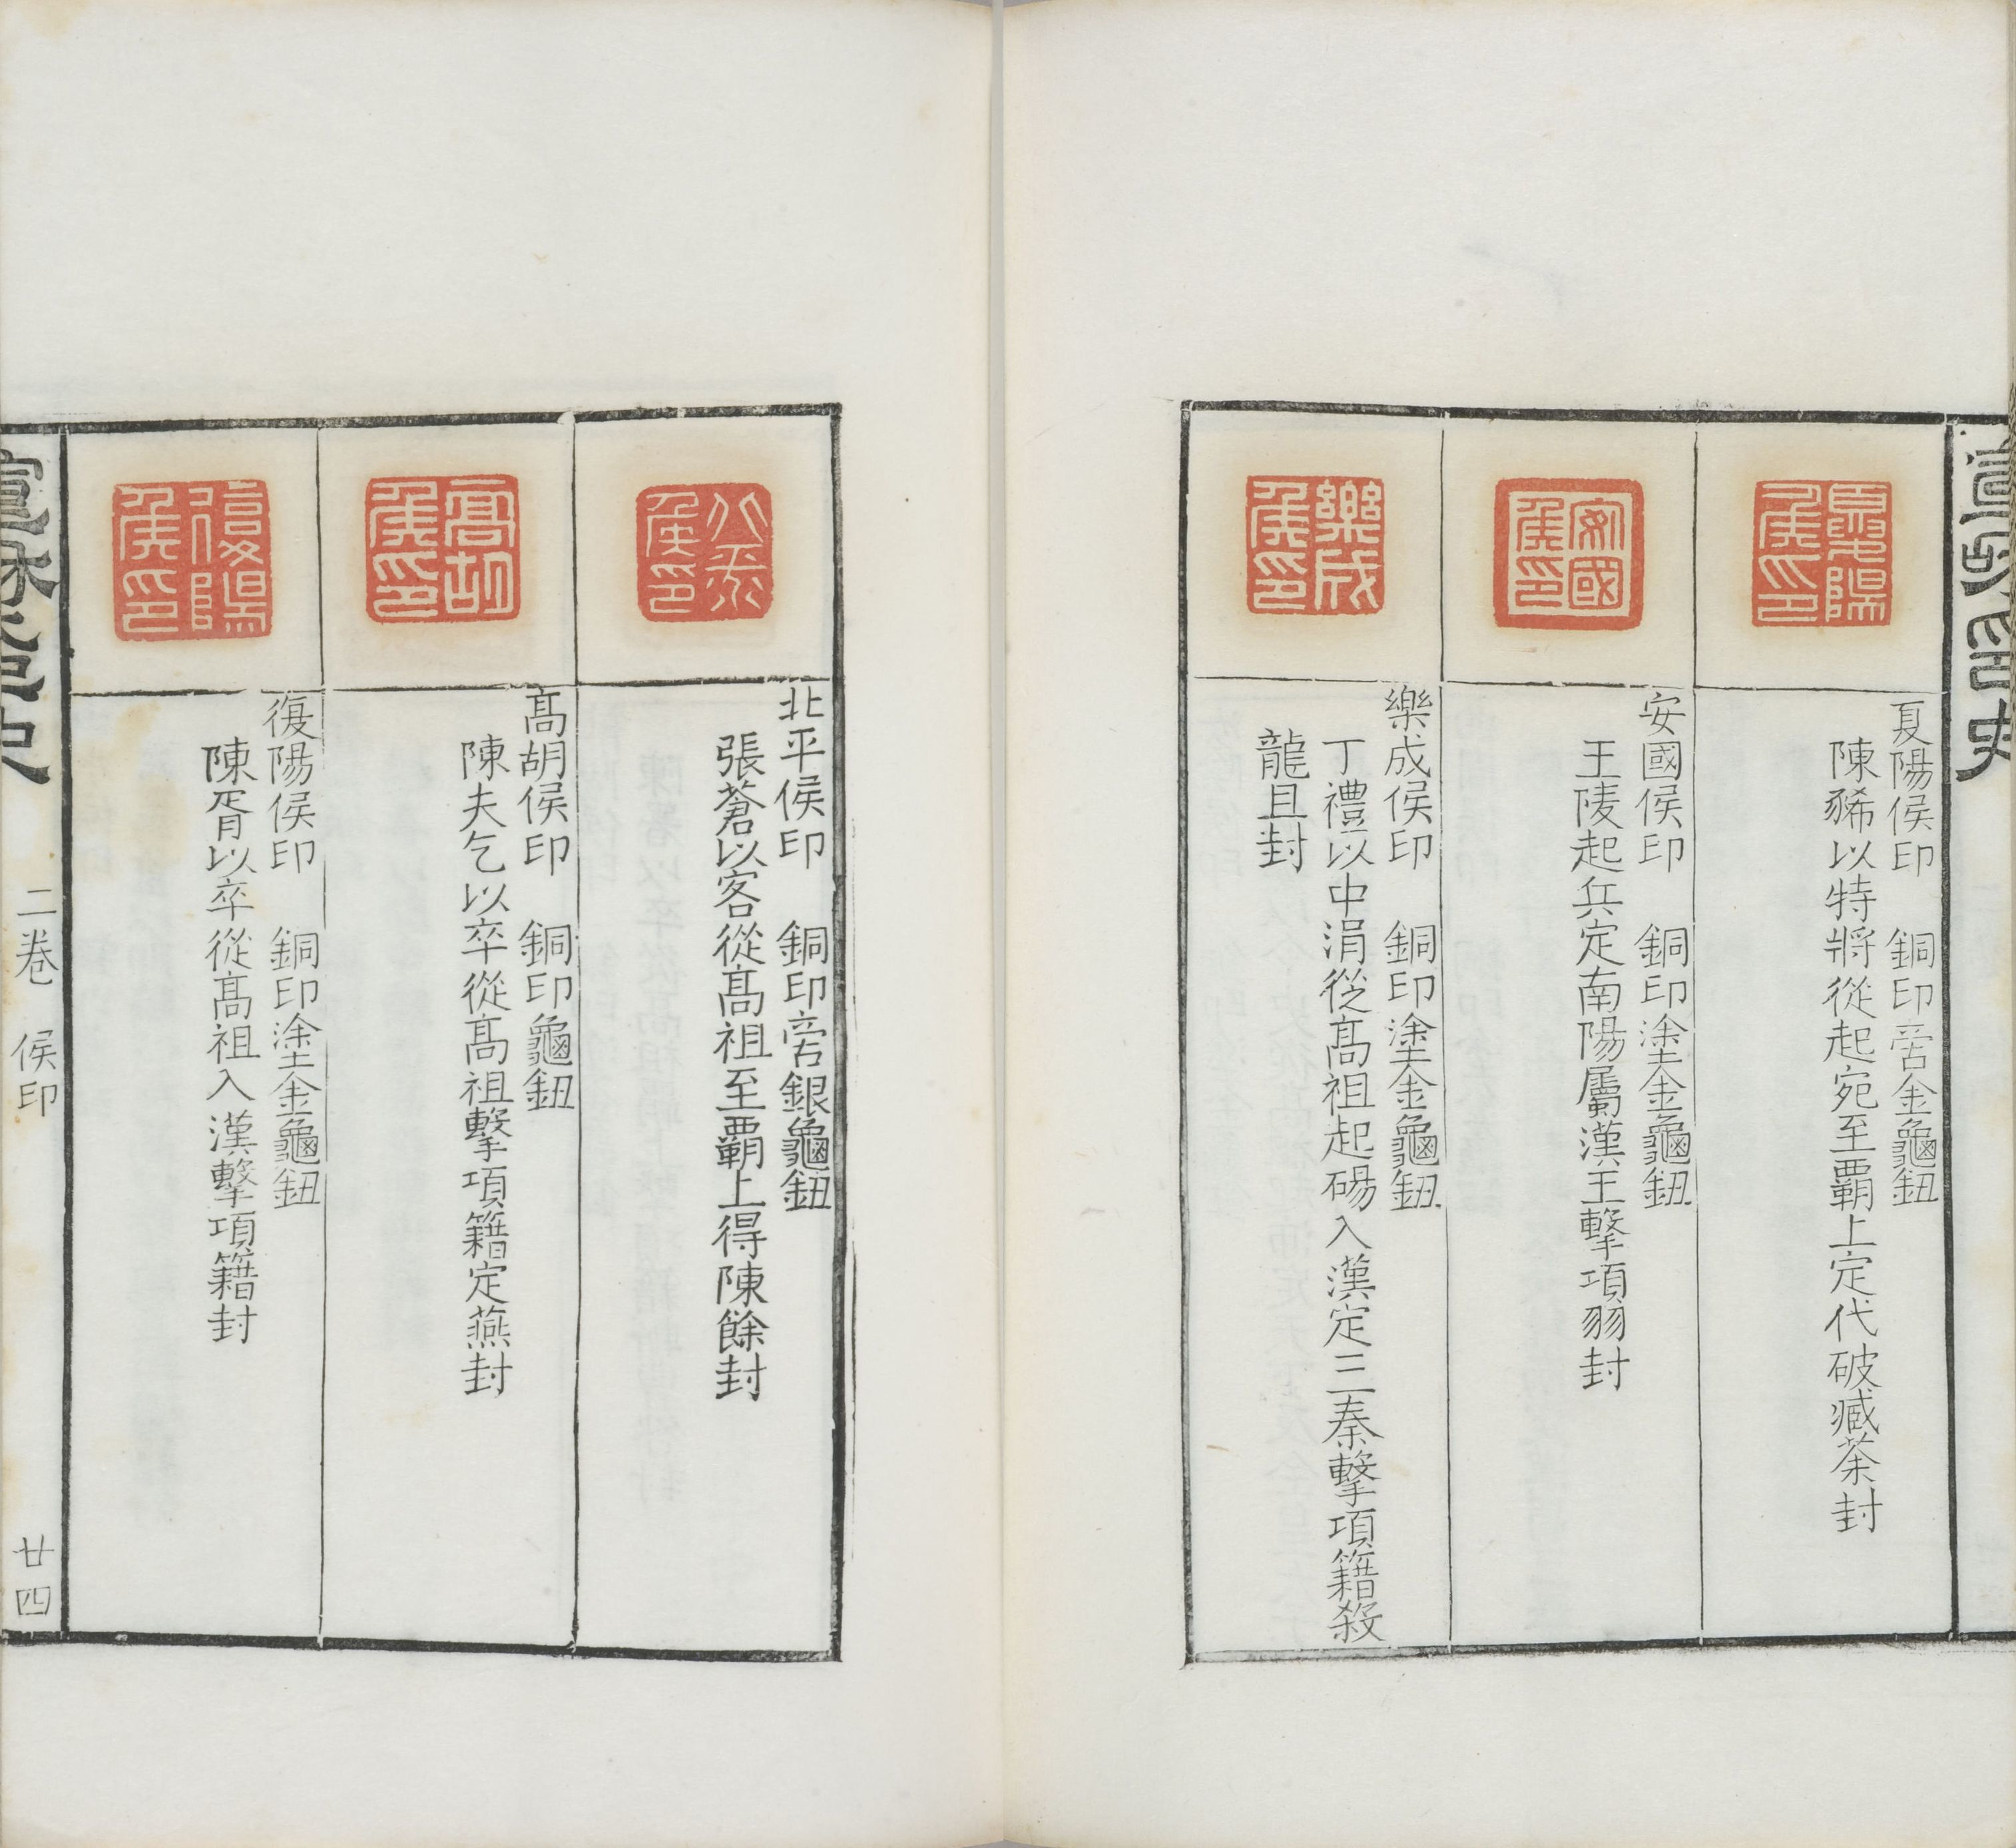 夏陽侯印
夏陽侯印 銅印旁金龜鈕
陳豨以特將從起宛至覇上定代破臧荼封
安國侯印
安國侯印 銅印塗金龜鈕
王陵起兵定南陽屬漢王擊項羽封
樂成侯印
樂成侯印 銅印塗金龜鈕
丁禮以中涓從髙祖起碭入漢定三秦擊項籍殺
龍且封
北平侯印
北平侯印 銅印旁銀龜鈕
張蒼以客從髙祖至覇上得陳餘封
高胡侯印
髙胡侯印 銅印龜鈕
陳夫乞以卒從髙祖擊項籍定燕封
復陽侯印
復陽侯印 銅印塗金龜鈕
陳胥以卒從髙祖入漢擊項籍封
二卷 侯印 廿四